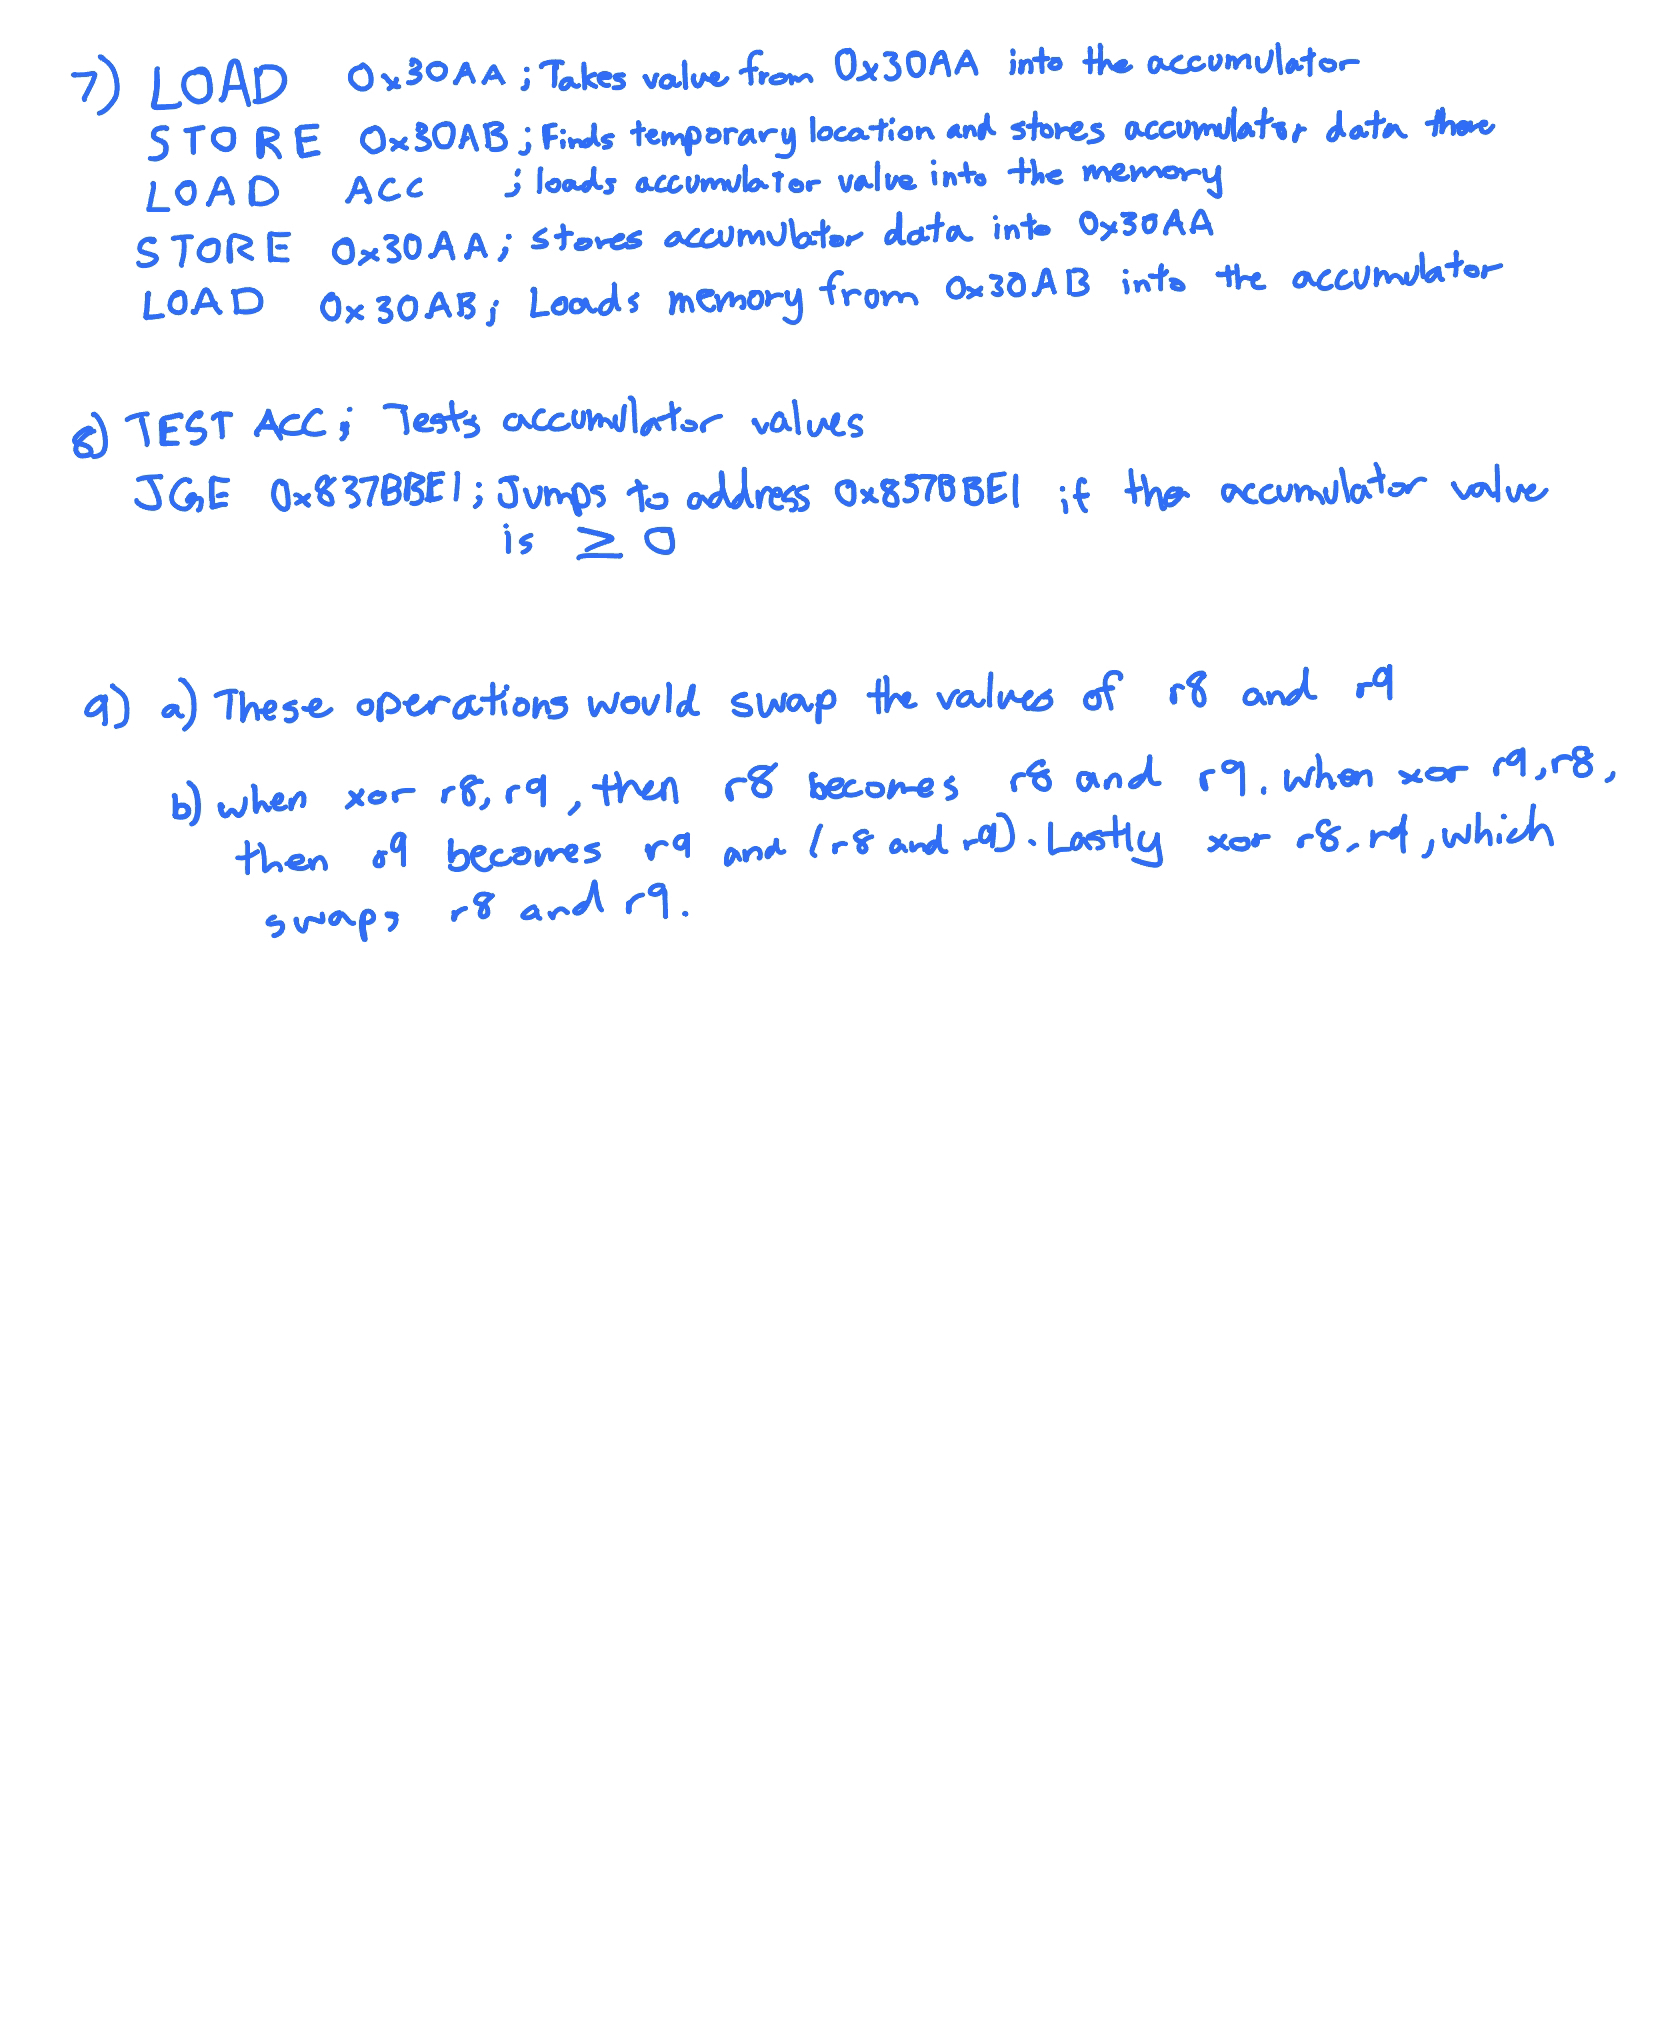 7) LOAD 0x30AA ; Takes value from 0x30AA into the accumulator
STORE 0x30AB ; Finds temporary location and stores accumulator data there
LOAD ACC ; loads accumulator value into the memory
STORE 0x30AA ; stores accumulator data into 0x30AA
LOAD 0x30AB ; Loads memory from 0x30AB into the accumulator
8) TEST ACC ; Tests accumulator values
JGE 0x837BBE1 ; Jumps to address 0x837BBE1 if the accumulator value
is ≥ 0
9) a) These operations would swap the values of r8 and r9
b) when xor r8, r9, then r8 becomes r8 and r9. when xor r9, r8,
then r9 becomes r9 and (r8 and r9). Lastly xor r8, r9, which
swaps r8 and r9.